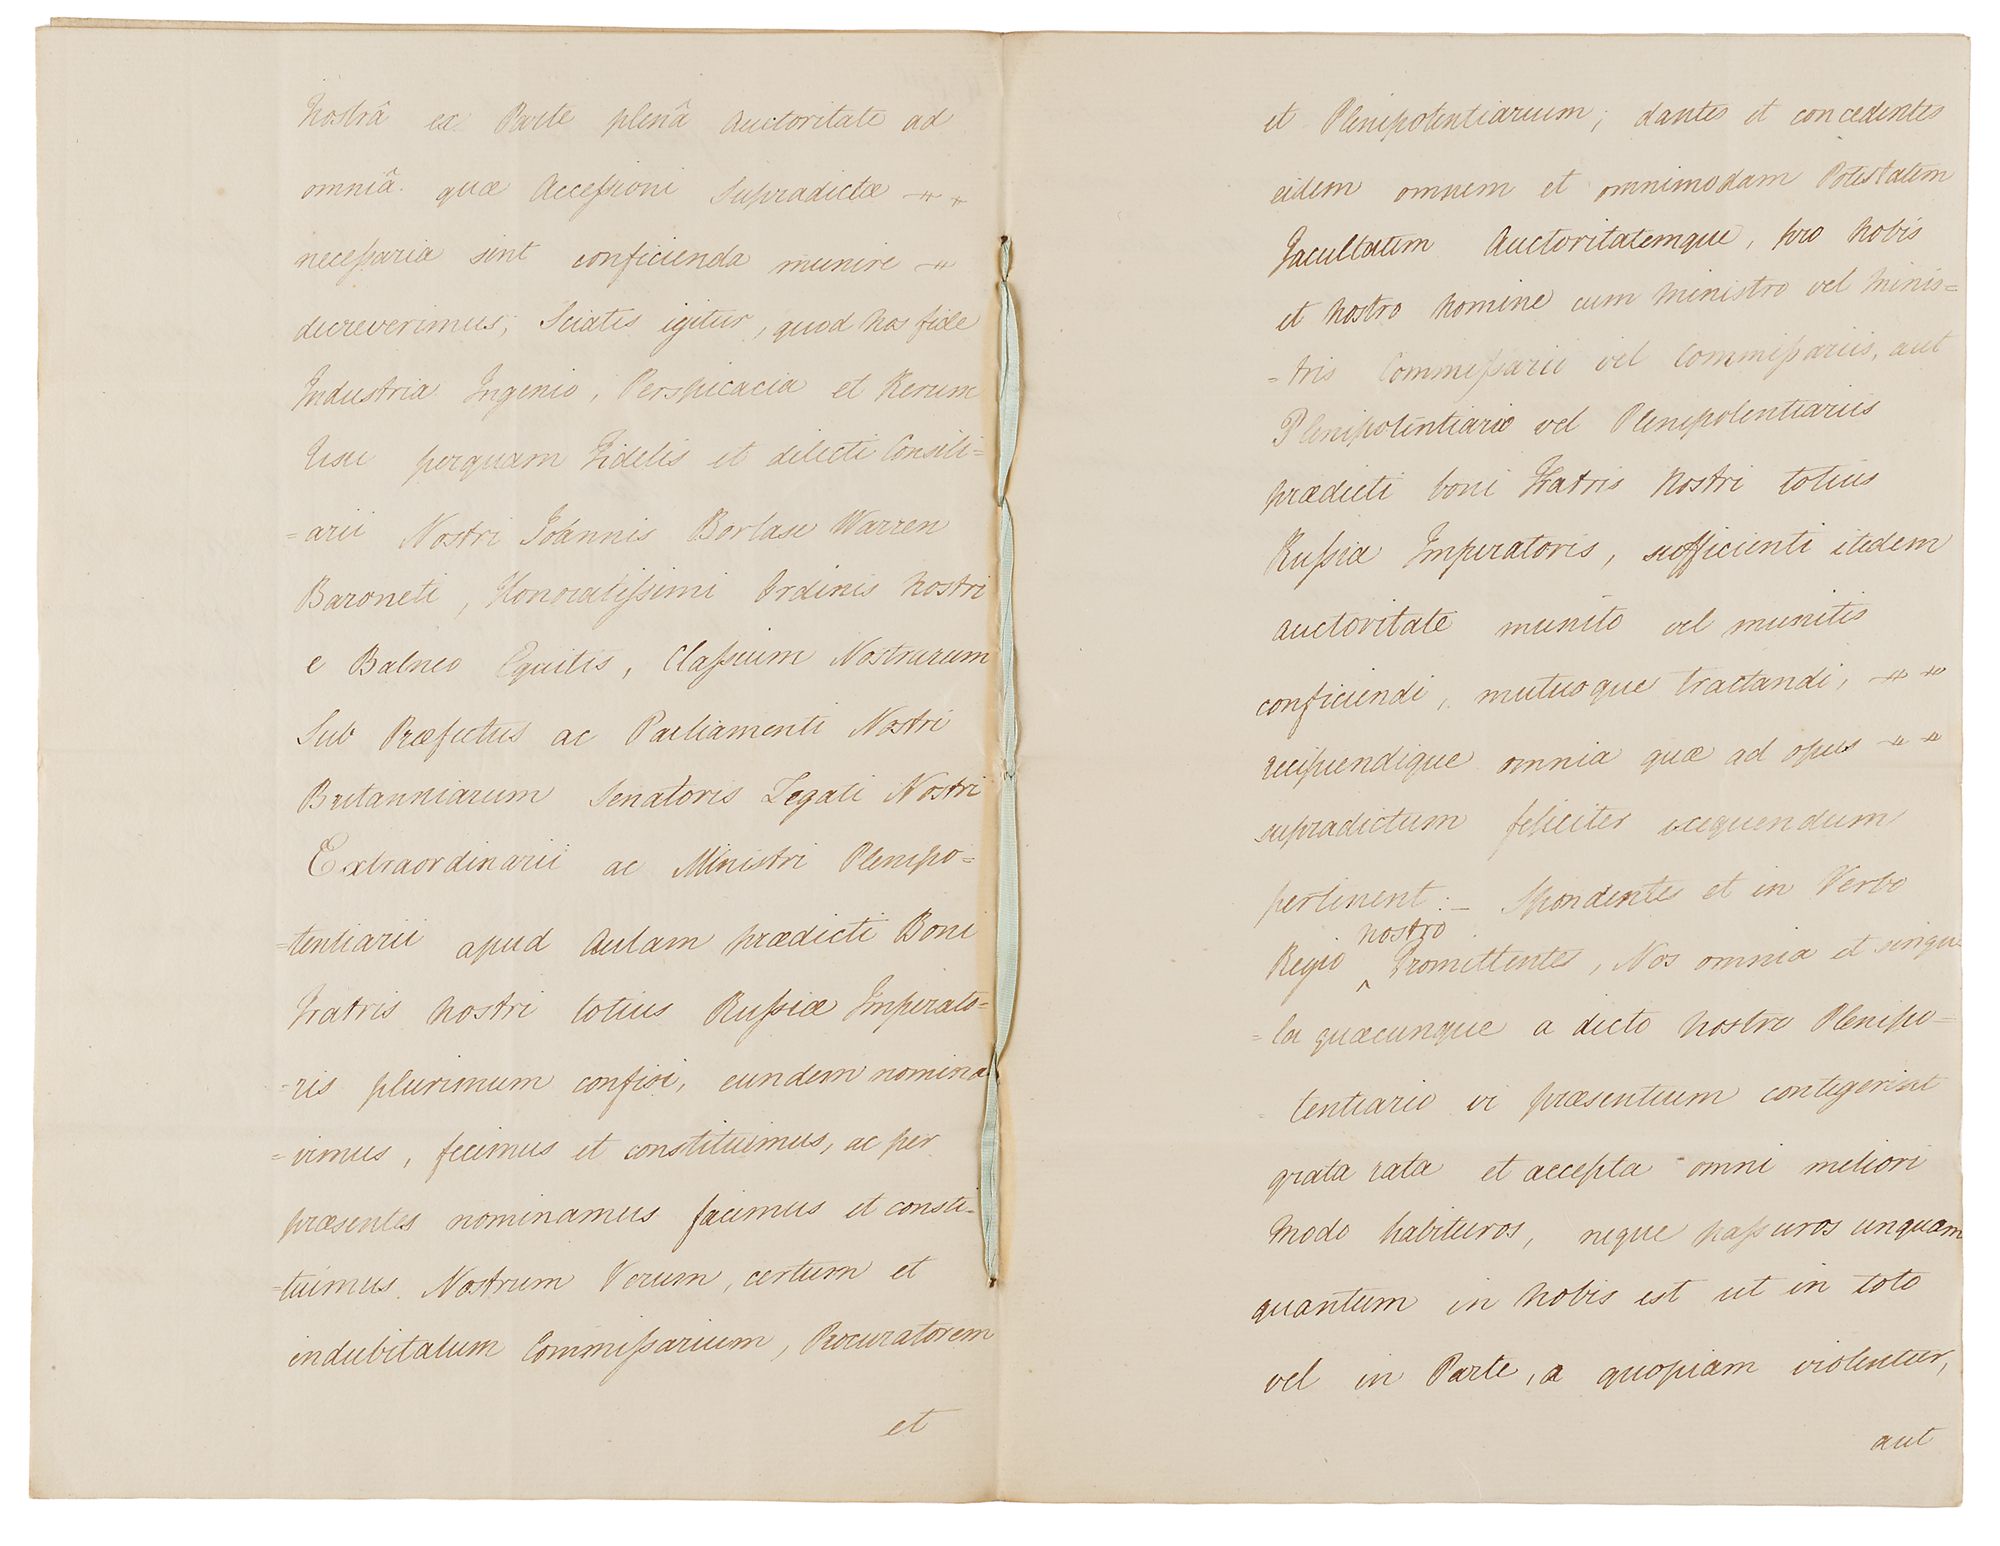 Nostrâ ex Parte plenâ Auctoritate ad
omniâ quæ Accessioni Supradictæ
necessaria sint conficienda munire
decreverimus; Sciatis igitur, quod Nos fide
Industria Ingenio, Perspicacia et Rerum
Usu perquam Fidelis et dilecti Consili=
=arii Nostri Johannis Borlase Warren
Baroneti, Honoratissimi Ordinis Nostri
e Balneo Equitis, Classium Nostrarum
Sub Præfectus ac Parliamenti Nostri
Britanniarum Senatoris Legati Nostri
Extraordinarii ac Ministri Plenipo=
=tentiarii apud Aulam prædicti Boni
Fratris Nostri totius Russiæ Imperato=
=ris plurimum confisi, eundem nomina
=vimus, fecimus et constituimus, ac per
præsentes nominamus facimus et consti=
=tuimus. Nostrum Verum, certum et
indubitatum Commissarium, Procuratorem
et
et Plenipotentiarium; dantes et concedentes
eidem omnem et omnimodam Potestatem
Facultatem Auctoritatemque, pro Nobis
et Nostro Nomine cum Ministro vel Minis=
=tris Commissarii vel Commissariis, aut
Plenipotentiario vel Plenipotentiariis
prædicti boni Fratris Nostri totius
Russiæ Imperatoris, sufficienti itidem
auctoritate munito vel munitis
conficiendi, mutuoque tractandi,
recipiendique omnia quæ ad opus
supradictum feliciter exequendum
pertinent:_ Spondentes et in Verbo
Regio nostro Promittentes, Nos omnia et singu
=la quæcunque a dicto Nostro Plenipo=
=tentiario vi præsentium contigerint
grata rata et accepta omni meliori
Modo habituros, neque passuros unquam
quantum in Nobis est ut in toto
vel in Parte, a quopiam violentur,
aut